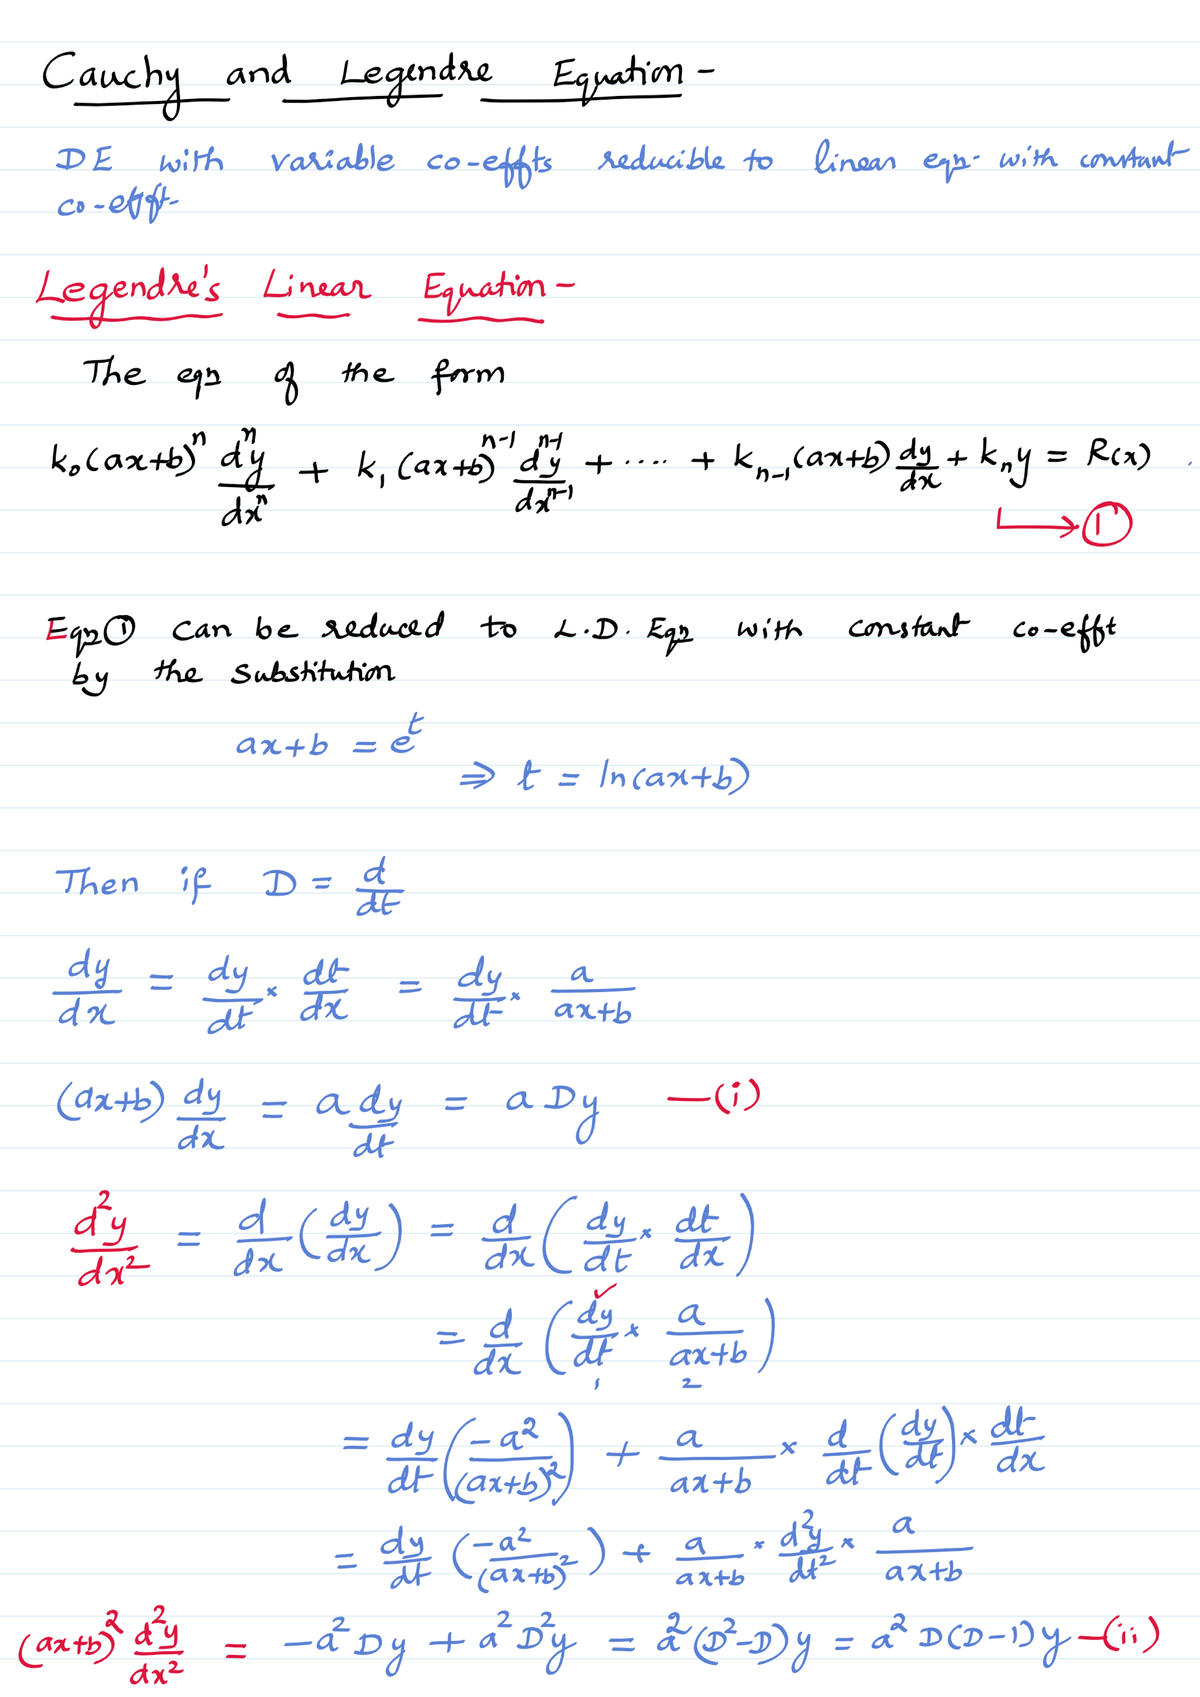 Cauchy and Legendre Equation -
DE with variable co-effts reducible to linear eqn. with constant
co-efft.
Legendre's Linear Equation -
The eqn of the form
k₀(ax+b)ⁿ dⁿy/dxⁿ + k₁(ax+b)ⁿ⁻¹ dⁿ⁻¹y/dxⁿ⁻¹ + .... + kₙ₋₁(ax+b) dy/dx + kₙy = R(x)
→ ①
Eqn① can be reduced to L.D. Eqn with constant co-efft
by the substitution
ax+b = eᵗ
⇒ t = ln(ax+b)
Then if D = d/dt
dy/dx = dy/dt × dt/dx = dy/dt × a/(ax+b)
(ax+b) dy/dx = a dy/dt = a Dy —(i)
d²y/dx² = d/dx (dy/dx) = d/dx (dy/dt × dt/dx)
= d/dx (dy/dt × a/(ax+b))
1 2
= dy/dt (-a²/(ax+b)²) + a/(ax+b) × d/dt (dy/dt) × dt/dx
= dy/dt (-a²/(ax+b)²) + a/(ax+b) × d²y/dt² × a/(ax+b)
(ax+b)² d²y/dx² = -a² Dy + a² D²y = a²(D²-D)y = a² D(D-1)y —(ii)